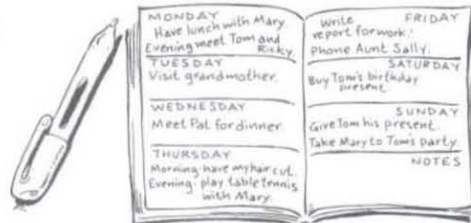 MONDAY
Have lunch with Mary
Evening meet Tom and
Ricky.
TUESDAY
Visit grandmother.
WEDNESDAY
Meet Pat for dinner
THURSDAY
Morning: have my hair cut.
Evening: play table tennis
with Mary.
FRIDAY
Write
report for work.
Phone Aunt Sally.
SATURDAY
Buy Tom's birthday
present
SUNDAY
Give Tom his present.
Take Mary to Tom's party.
NOTES